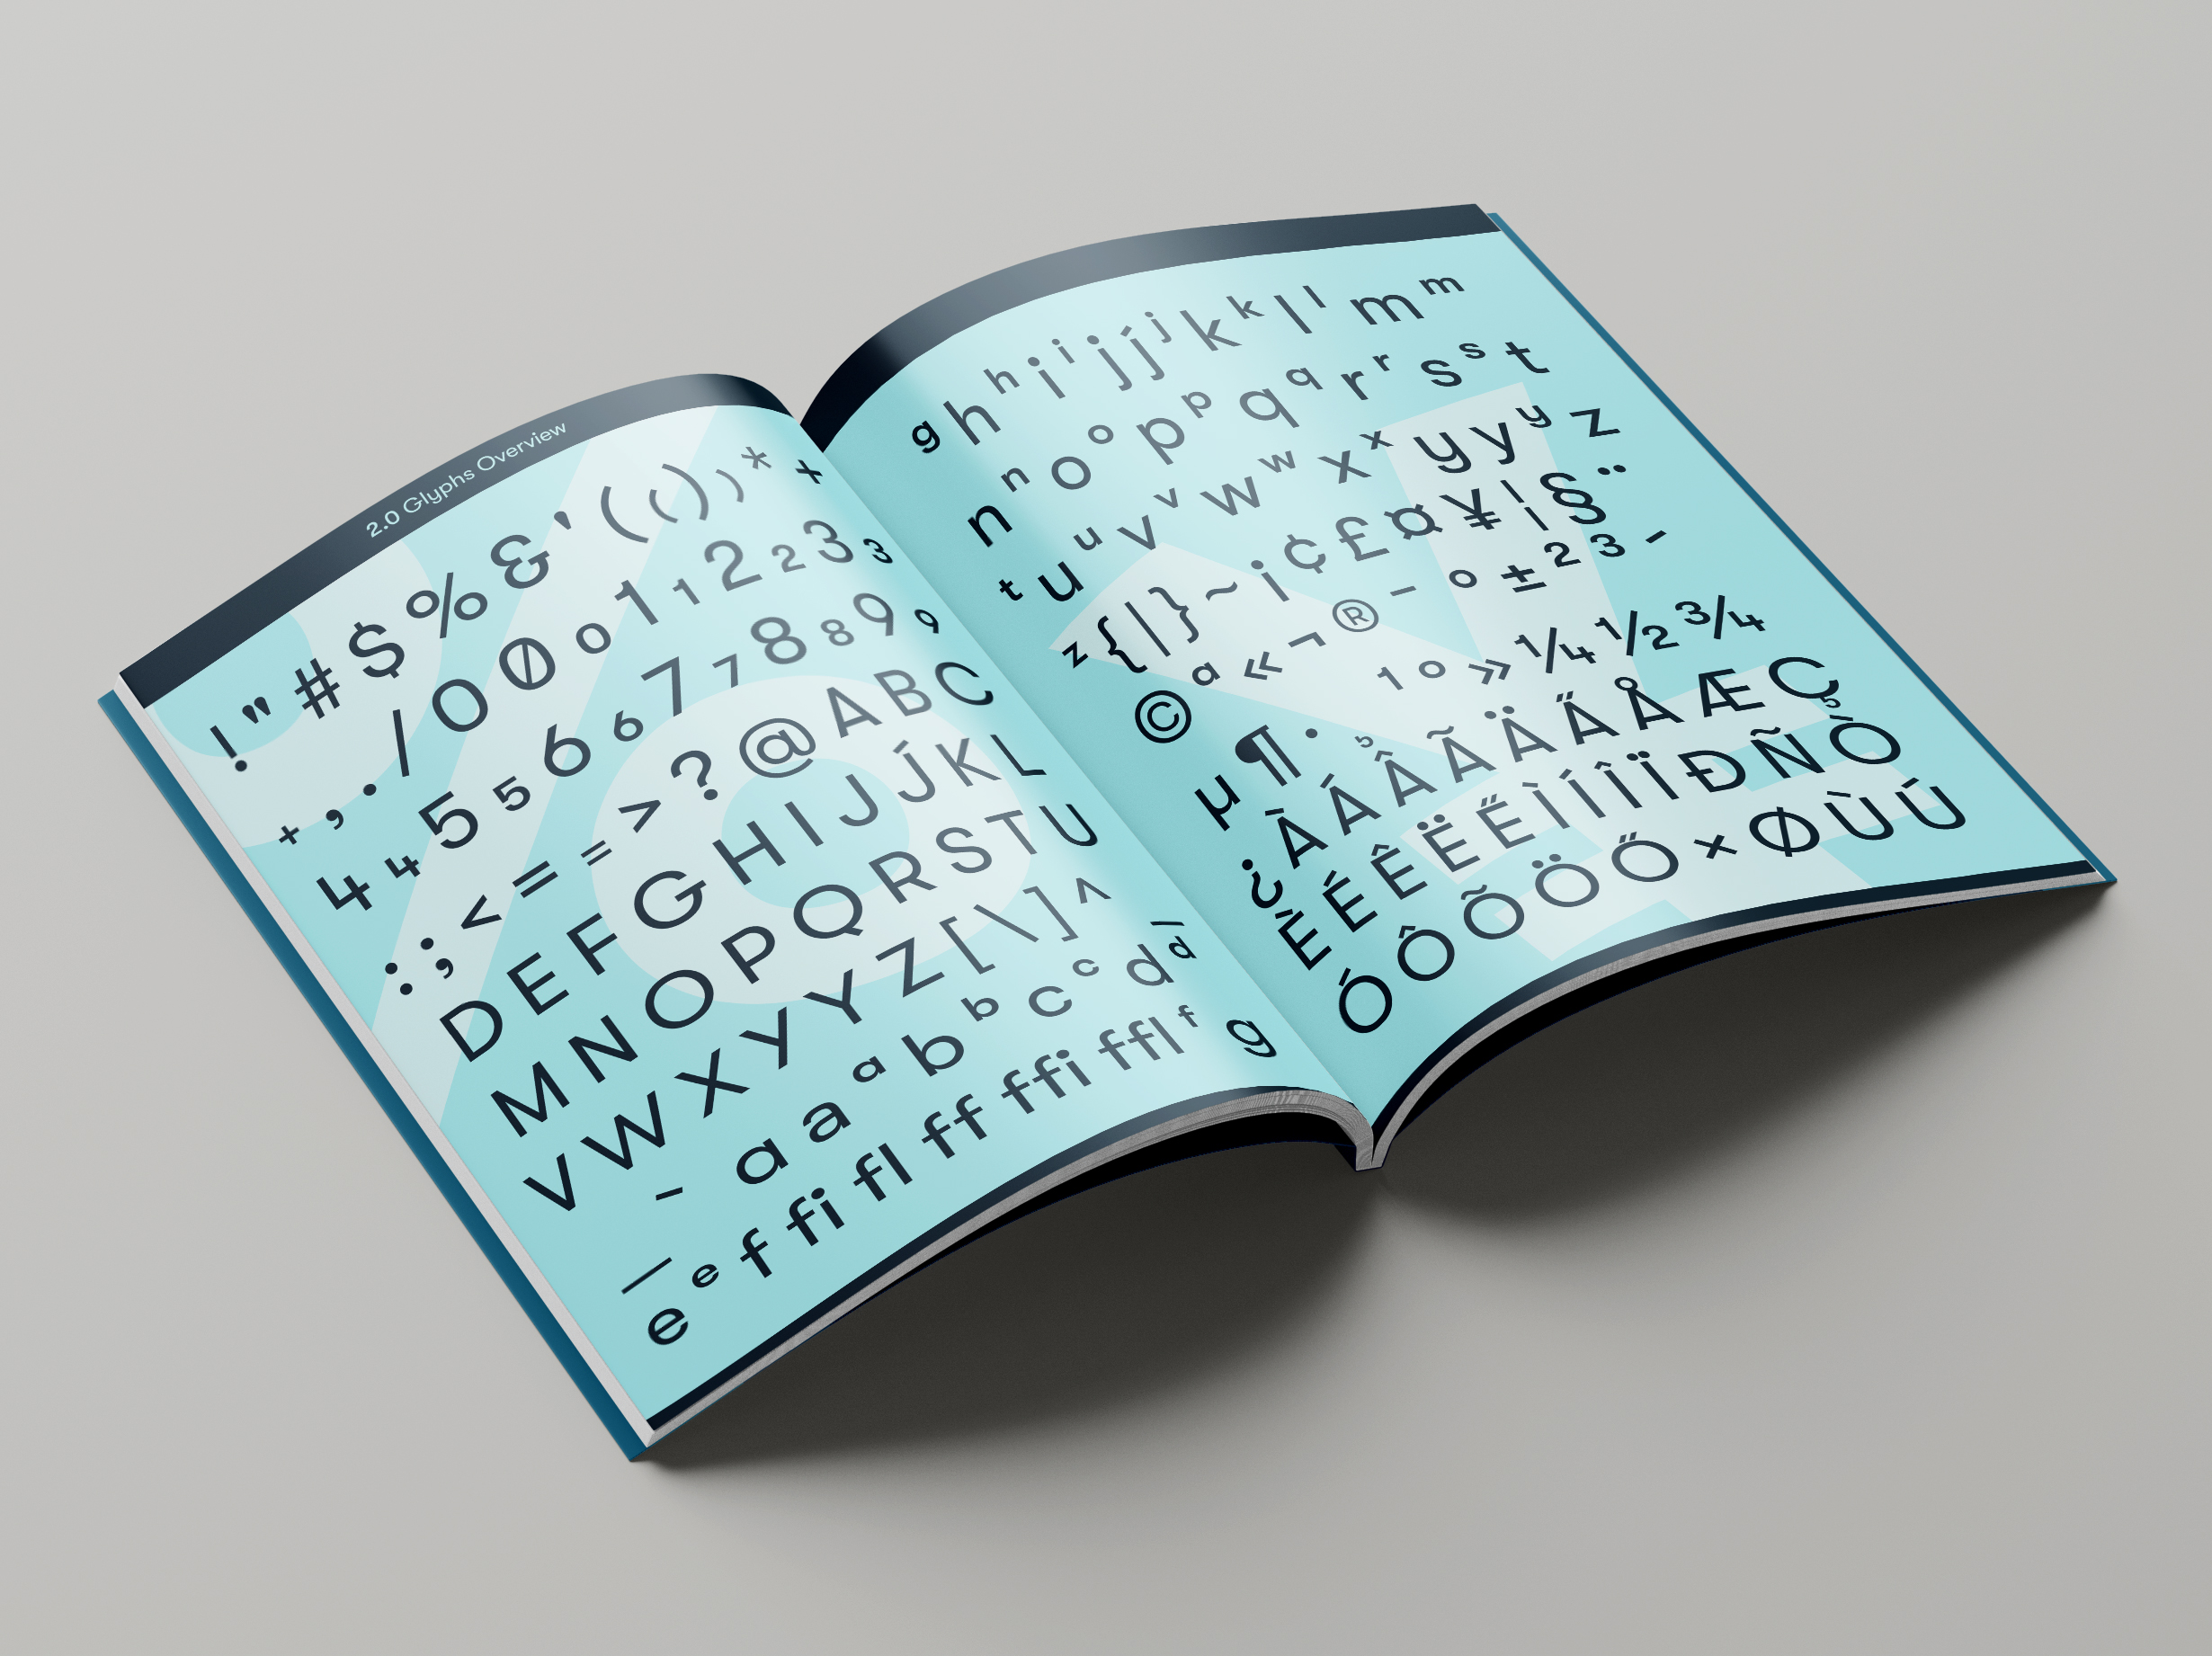 2.0 Glyphs Overview
! " # $ % & ' ( ( ) ) * +
+ , . / 0 0 0 1 1 2 2 3 3
4 4 5 5 6 6 7 7 8 8 9 9
: ; < = = > ? @ A B C
D E F G H I J J́ K L
M N O P Q R S T U
V W X Y Y Z [ \ ] ^
_ - a a a b b c c d d
e e f fi fl ff ffi ffl f g
g h h i i j j́ j k k l l m m
n n o o p p q q r r s s t
t u u v v w w x x y y y z
z { | } ~ ¡ ¢ £ ¤ ¥ ¦ § ¨
© ª « ¬ ® ¯ ° ± ² ³ -
µ ¶ · ¸ ¹ º » ¼ ½ ¾
¿ À Á Â Ã Ä A̋ Å Æ Ç
È É Ê Ë E̋ Ì Í Î Ï Ð Ñ Ò
Ó Ô Õ Ö Ő × Ø Ù Ú